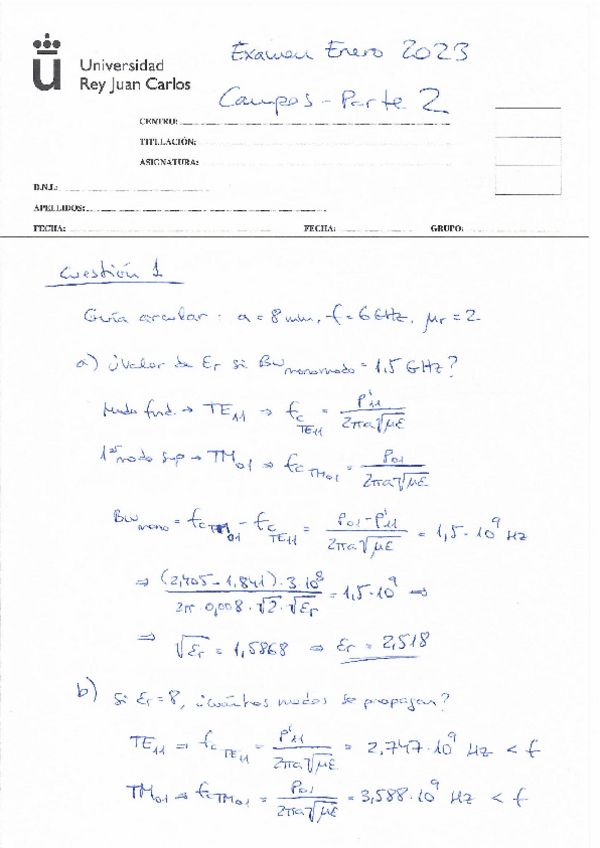 Examen Enero 2023
Universidad
Rey Juan Carlos
Campos - Parte 2
CENTRO:
TITULACIÓN:
ASIGNATURA:
D.N.I.:
APELLIDOS:
FECHA: FECHA: GRUPO:
Cuestión 1
Guía circular: a = 8 mm, f = 6 GHz, μr = 2
a) ¿Valor de Er si BW monomodo = 1,5 GHz?
Modo fund. → TE11 → fc TE11 = P'11 / 2πa√με
1er modo sup → TM01 ⇒ fc TM01 = P01 / 2πa√με
BW mono = fc TM01 - fc TE11 = P01 - P'11 / 2πa√με = 1,5 · 10^9 Hz
⇒ (2,405 - 1,841) · 3 · 10^8 / 2π · 0,008 · √2 · √Er = 1,5 · 10^9 ⇒
⇒ √Er = 1,5868 ⇒ Er = 2,518
b) Si Er = 8, ¿cuántos modos se propagan?
TE11 ⇒ fc TE11 = P'11 / 2πa√με = 2,747 · 10^9 Hz < f
TM01 ⇒ fc TM01 = P01 / 2πa√με = 3,588 · 10^9 Hz < f